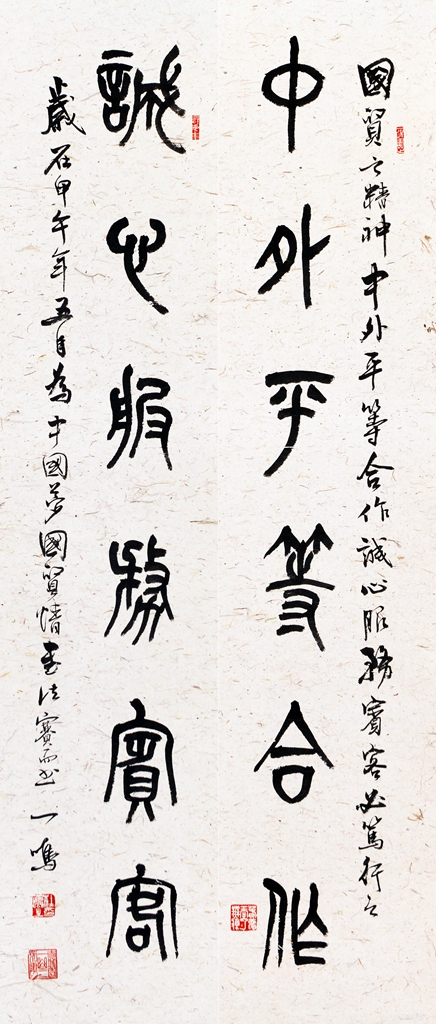 國賢之精神中外平等合作誠心服務賓客必篤行之
中外平等合作
誠心服務賓客
歲在甲午年五月為中國夢國賢情書法賽而書一鳴